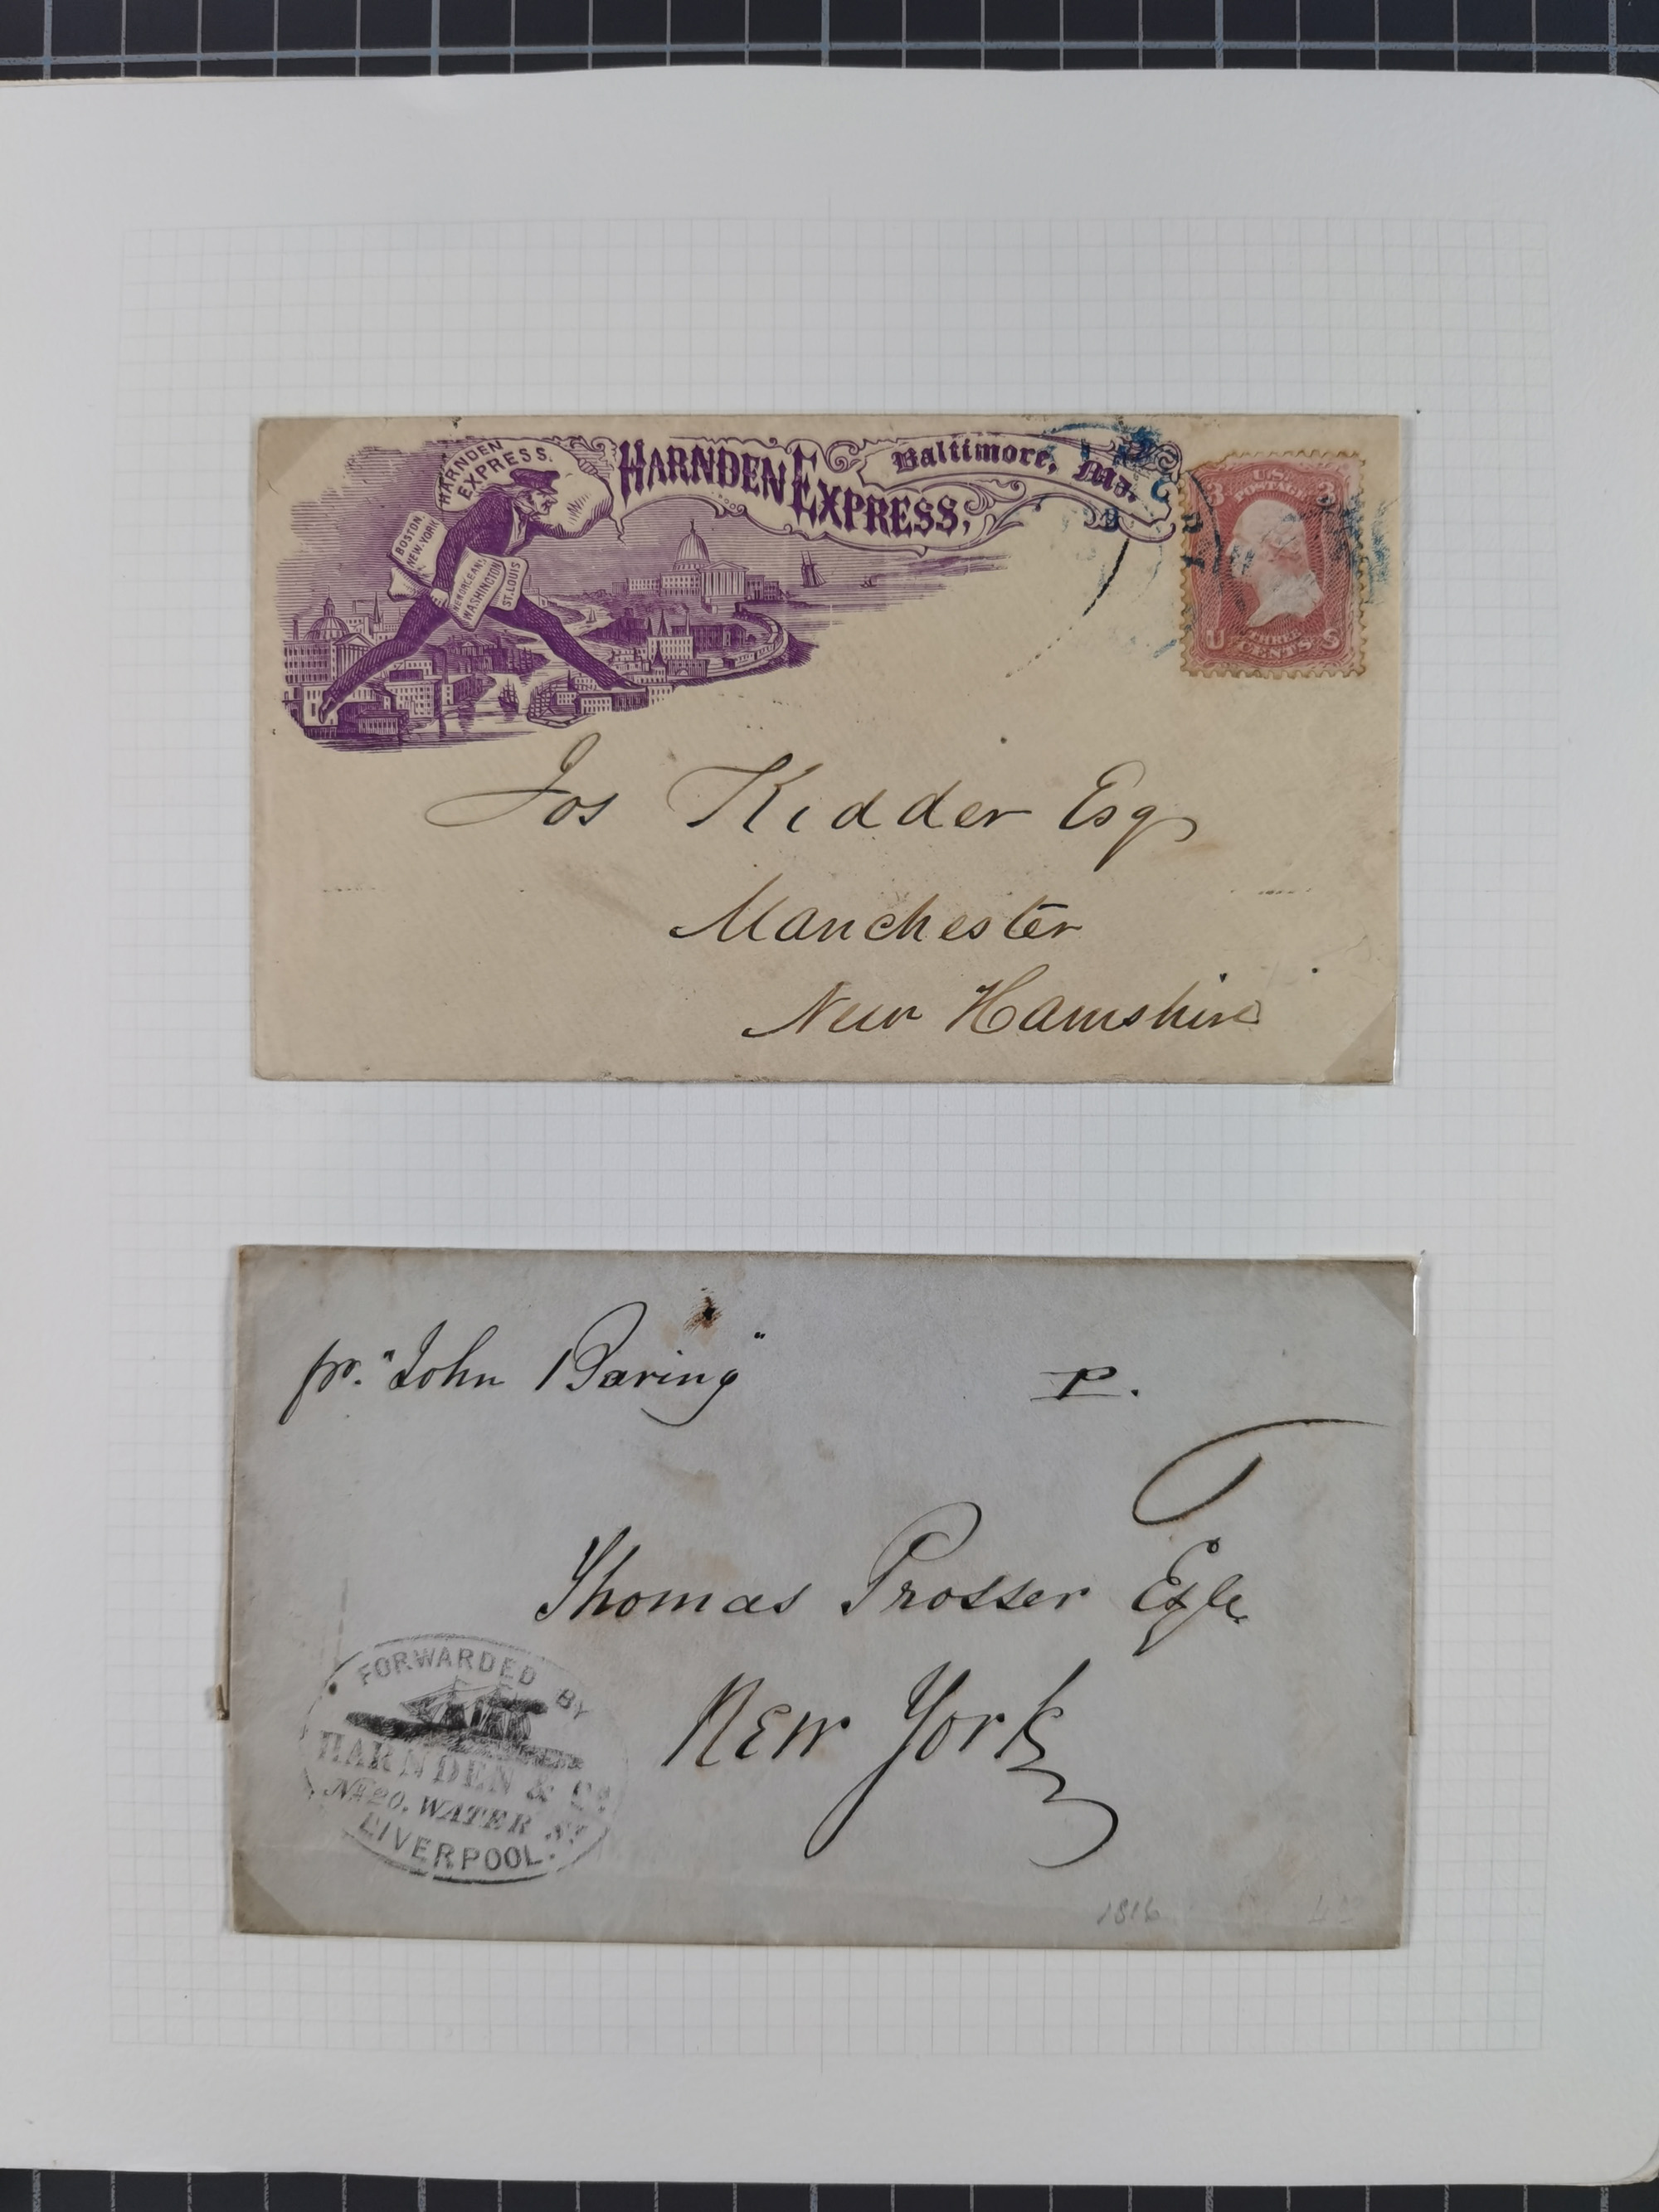 HARNDEN
EXPRESS.
BOSTON
NEW-YORK
NEW ORLEANS
WASHINGTON
ST. LOUIS
HARNDEN EXPRESS,
Baltimore, Md.
U.S.
POSTAGE
3 3
U S
THREE
CENTS
Jos Kidder Esq
Manchester
New Hamshire
pr. "John Baring"
P.
Thomas Prosser Esqe
New York
FORWARDED BY
HARNDEN & Co.
No. 20. WATER St.
LIVERPOOL.